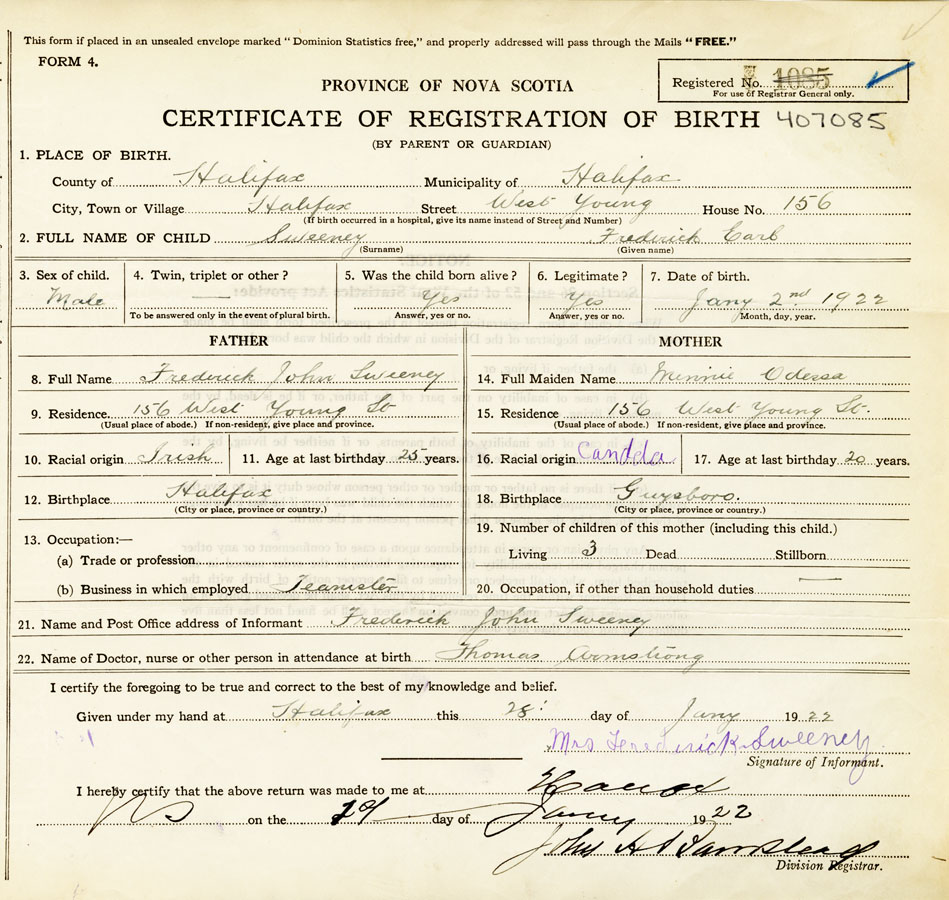 This form if placed in an unsealed envelope marked "Dominion Statistics free," and properly addressed will pass through the Mails "FREE."
FORM 4.
PROVINCE OF NOVA SCOTIA
Registered No. 1085
For use of Registrar General only.
CERTIFICATE OF REGISTRATION OF BIRTH 407085
(BY PARENT OR GUARDIAN)
1. PLACE OF BIRTH.
County of Halifax Municipality of Halifax
City, Town or Village Halifax Street West Young House No. 156
(If birth occurred in a hospital, give its name instead of Street and Number)
2. FULL NAME OF CHILD Sweeney Frederick Carl
(Surname) (Given name)
3. Sex of child. 4. Twin, triplet or other? 5. Was the child born alive? 6. Legitimate? 7. Date of birth.
Male — Yes Yes Jany 2nd 1922
To be answered only in the event of plural birth. Answer, yes or no. Answer, yes or no. Month, day, year.
FATHER MOTHER
8. Full Name Frederick John Sweeney 14. Full Maiden Name Minnie Odessa
9. Residence. 156 West Young St 15. Residence 156 West Young St.
(Usual place of abode.) If non-resident, give place and province. (Usual place of abode.) If non-resident, give place and province.
10. Racial origin Irish 11. Age at last birthday 25 years. 16. Racial origin Candda. 17. Age at last birthday 20 years.
12. Birthplace Halifax 18. Birthplace Guysboro.
(City or place, province or country.) (City or place, province or country.)
13. Occupation:— 19. Number of children of this mother (including this child.)
(a) Trade or profession Living 3 Dead Stillborn
(b) Business in which employed Teamster 20. Occupation, if other than household duties —
21. Name and Post Office address of Informant Frederick John Sweeney
22. Name of Doctor, nurse or other person in attendance at birth Thomas Armstrong
I certify the foregoing to be true and correct to the best of my knowledge and belief.
Given under my hand at Halifax this 28 day of Jany 1922
Mrs Frederick Sweeney
Signature of Informant.
I hereby certify that the above return was made to me at
NS on the day of Jany 1922
John
Division Registrar.